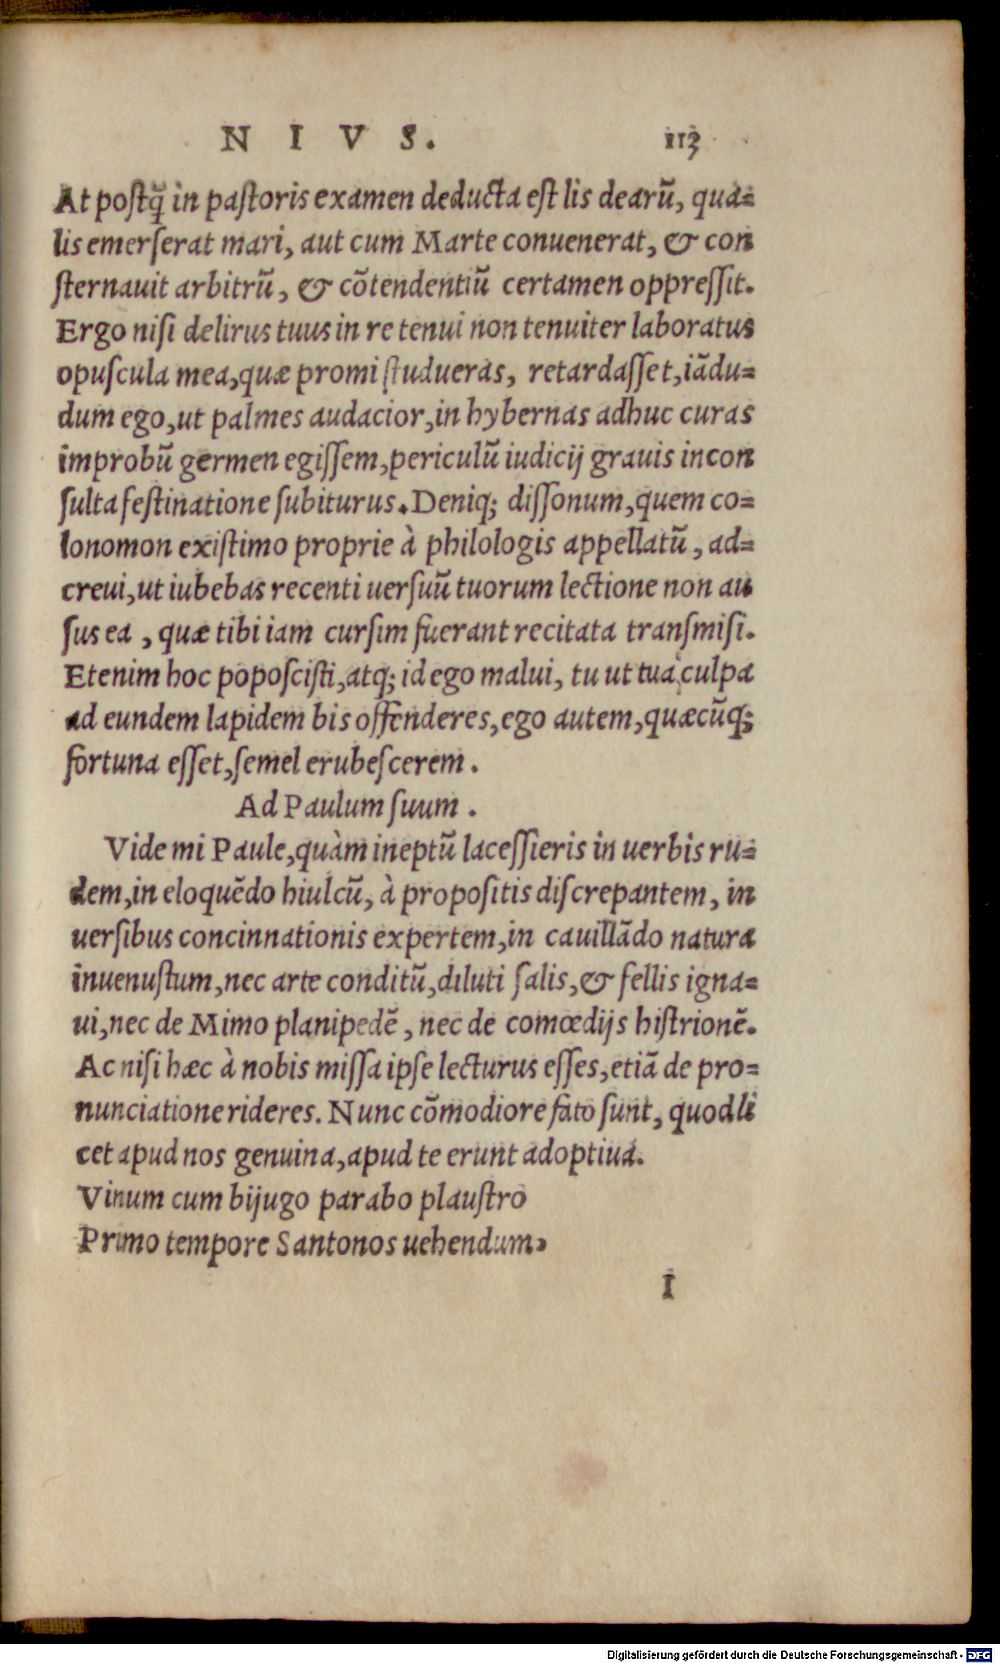 NIVS. 113
At postq̃ in pastoris examen deducta est lis dearũ, qua=
lis emerserat mari, aut cum Marte conuenerat, & con
sternauit arbitrũ, & cõtendentiũ certamen oppressit.
Ergo nisi delirus tuus in re tenui non tenuiter laboratus
opuscula mea,quæ promi studueras, retardasset,iãdu=
dum ego,ut palmes audacior,in hybernas adhuc curas
improbũ germen egissem,periculũ iudicij grauis incon
sulta festinatione subiturus.Deniq; dissonum,quem co=
lonomon existimo proprie à philologis appellatũ, ad=
creui,ut iubebas recenti uersuũ tuorum lectione non au
sus ea , quæ tibi iam cursim fuerant recitata transmisi.
Etenim hoc poposcisti,atq; id ego malui, tu ut tua culpa
ad eundem lapidem bis offenderes,ego autem,quæcũq;
fortuna esset,semel erubescerem .
Ad Paulum suum .
Vide mi Paule,quàm ineptũ lacessieris in uerbis ru=
dem,in eloquẽdo hiulcũ, à propositis discrepantem, in
uersibus concinnationis expertem,in cauillãdo natura
inuenustum,nec arte conditũ,diluti salis,& fellis igna=
ui,nec de Mimo planipedẽ, nec de comœdijs histrionẽ.
Ac nisi hæc à nobis missa ipse lecturus esses,etiã de pro=
nunciatione rideres. Nunc cõmodiore fato sunt, quod li
cet apud nos genuina,apud te erunt adoptiua.
Vinum cum bijugo parabo plaustro
Primo tempore Santonos uehendum,
I
Digitalisierung gefördert durch die Deutsche Forschungsgemeinschaft - DFG